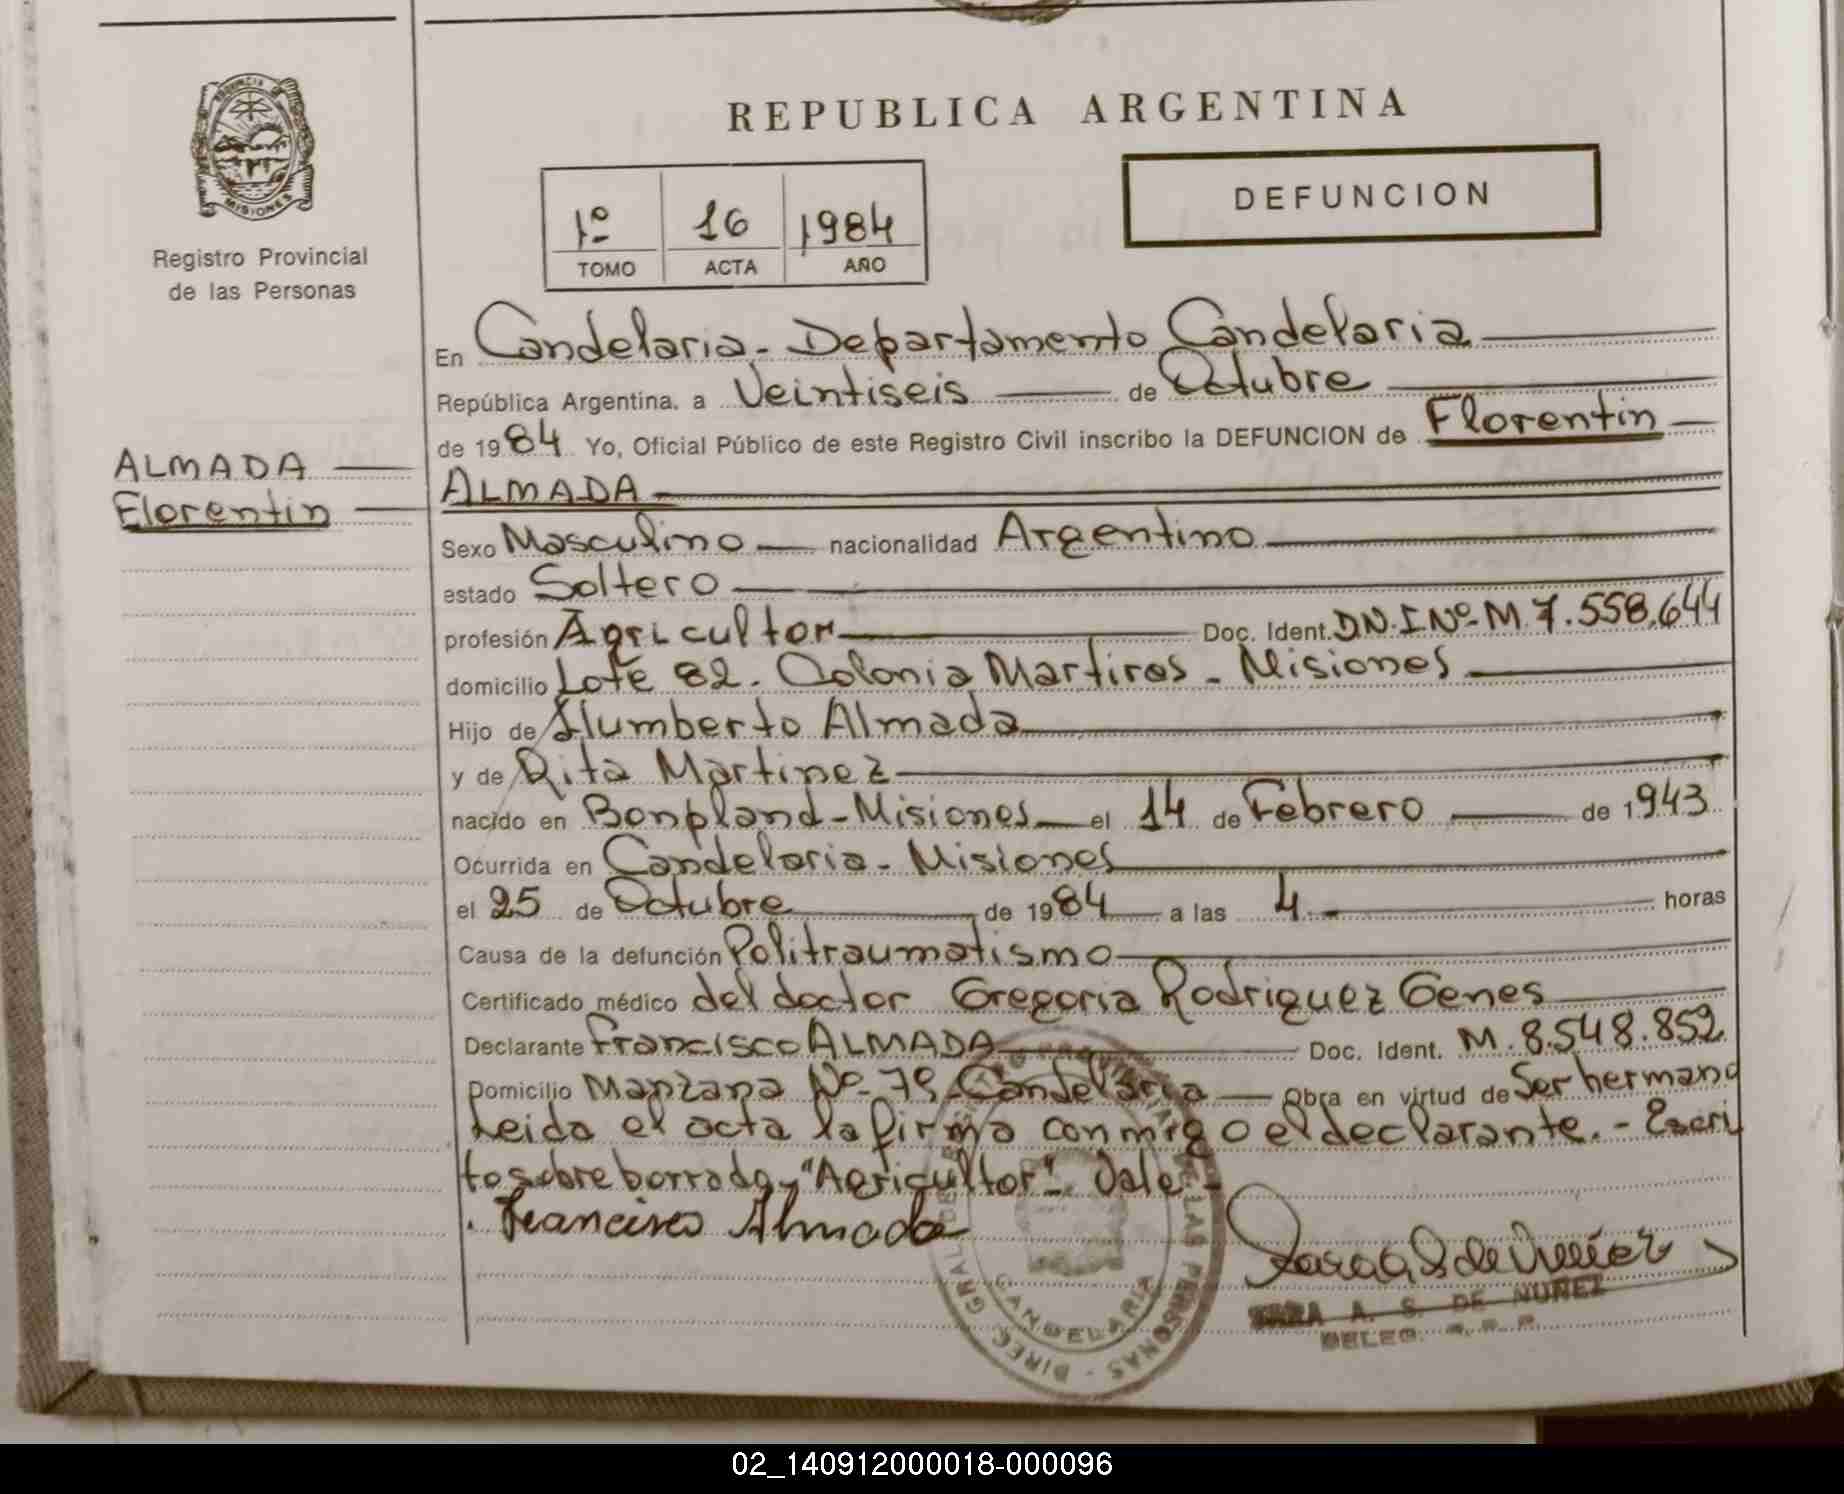 PROVINCIA DE
MISIONES
Registro Provincial
de las Personas
REPUBLICA ARGENTINA
DEFUNCION
1º 16 1984
TOMO ACTA AÑO
En Candelaria - Departamento Candelaria
República Argentina, a Veintiseis de Octubre
de 1984 Yo, Oficial Público de este Registro Civil inscribo la DEFUNCION de Florentin
ALMADA
ALMADA
Florentin
Sexo Masculino nacionalidad Argentino
estado Soltero
profesión Agricultor Doc. Ident. DN.I Nº M 7.558.644
domicilio Lote 82. Colonia Martires - Misiones
Hijo de Humberto Almada
y de Rita Martinez
nacido en Bonpland - Misiones el 14 de Febrero de 1943
Ocurrida en Candelaria - Misiones
el 25 de Octubre de 1984 a las 4 horas
Causa de la defunción Politraumatismo
Certificado médico del doctor Gregoria Rodriguez Genes
Declarante Francisco ALMADA Doc. Ident. M. 8.548.852
Domicilio Manzana Nº 79 - Candelaria Obra en virtud de Ser hermano
Leida el acta la firma conmigo el declarante. - Escri
to sobre borrado, "Agricultor". Vale -
Francisco Almada
Sara A S de Nuñez
SARA A. S. DE NUÑEZ
DELEG. R. P. P.
DIREC. GRAL. DEL REGISTRO PROVINCIAL DE LAS PERSONAS - CANDELARIA
02_140912000018-000096